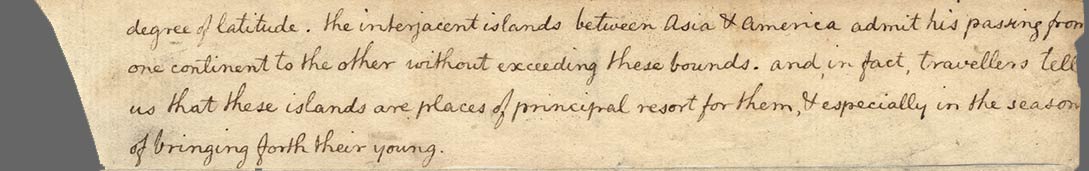 degree of latitude. the interjacent islands between Asia & America admit his passing from
one continent to the other without exceeding these bounds. and, in fact, travellers tell
us that these islands are places of principal resort for them, & especially in the season
of bringing forth their young.